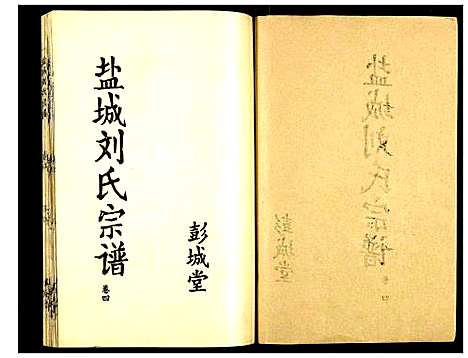 盐城刘氏宗谱
卷四
彭城堂
盐城刘氏宗谱
卷四
彭城堂